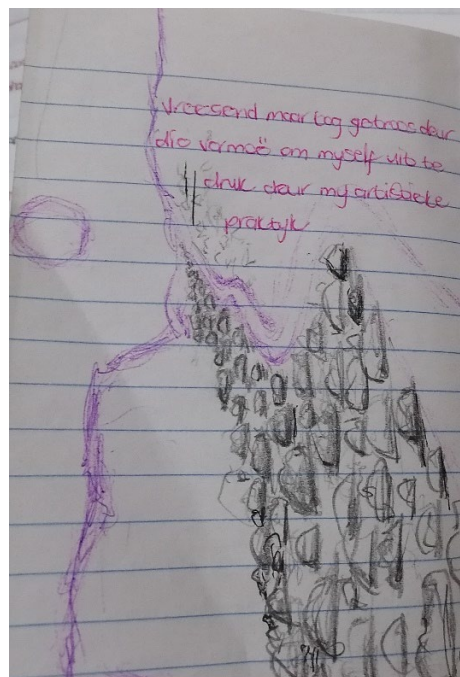 vreesend maar tog getroos deur
die vermoë om myself uit te
druk deur my artistieke
praktyk